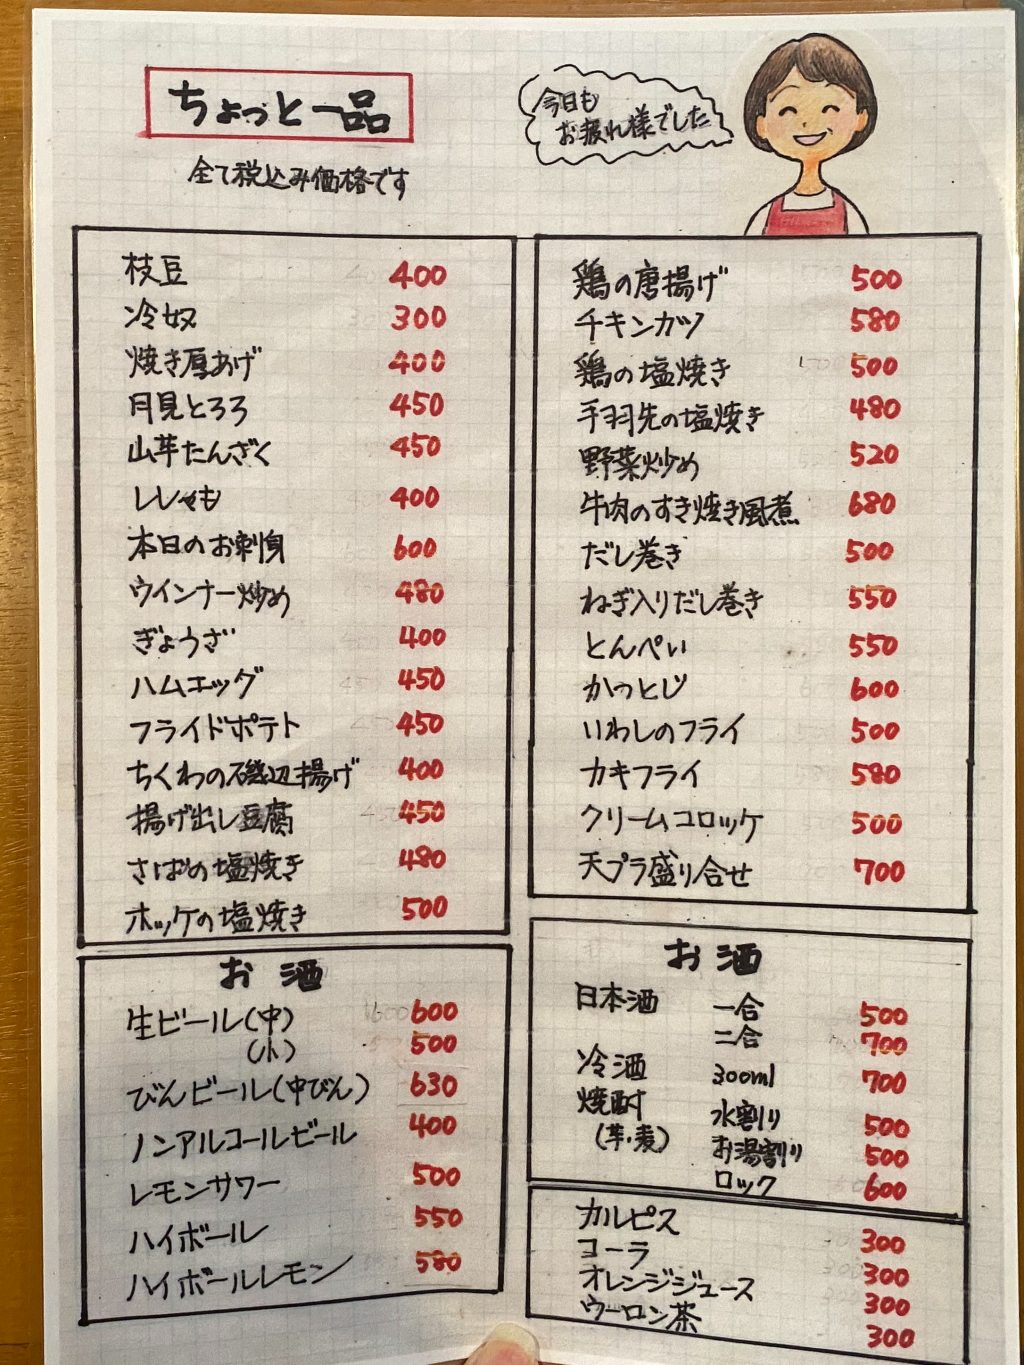 ちょっと一品
全て税込み価格です
今日も
お疲れ様でした
枝豆 400
冷奴 300
焼き厚あげ 400
月見とろろ 450
山芋たんざく 450
ししゃも 400
本日のお刺身 600
ウインナー炒め 480
ぎょうざ 400
ハムエッグ 450
フライドポテト 450
ちくわの磯辺揚げ 400
揚げ出し豆腐 450
さばの塩焼き 480
ホッケの塩焼き 500
鶏の唐揚げ 500
チキンカツ 580
鶏の塩焼き 500
手羽先の塩焼き 480
野菜炒め 520
牛肉のすき焼き風煮 680
だし巻き 500
ねぎ入りだし巻き 550
とんぺい 550
かつとじ 600
いわしのフライ 500
カキフライ 580
クリームコロッケ 500
天プラ盛り合せ 700
お酒
生ビール(中) 600
(小) 500
びんビール(中びん) 630
ノンアルコールビール 400
レモンサワー 500
ハイボール 550
ハイボールレモン 580
お酒
日本酒 一合 500
二合 700
冷酒 300ml 700
焼酎 水割り 500
(芋・麦) お湯割り 500
ロック 600
カルピス 300
コーラ 300
オレンジジュース 300
ウーロン茶 300